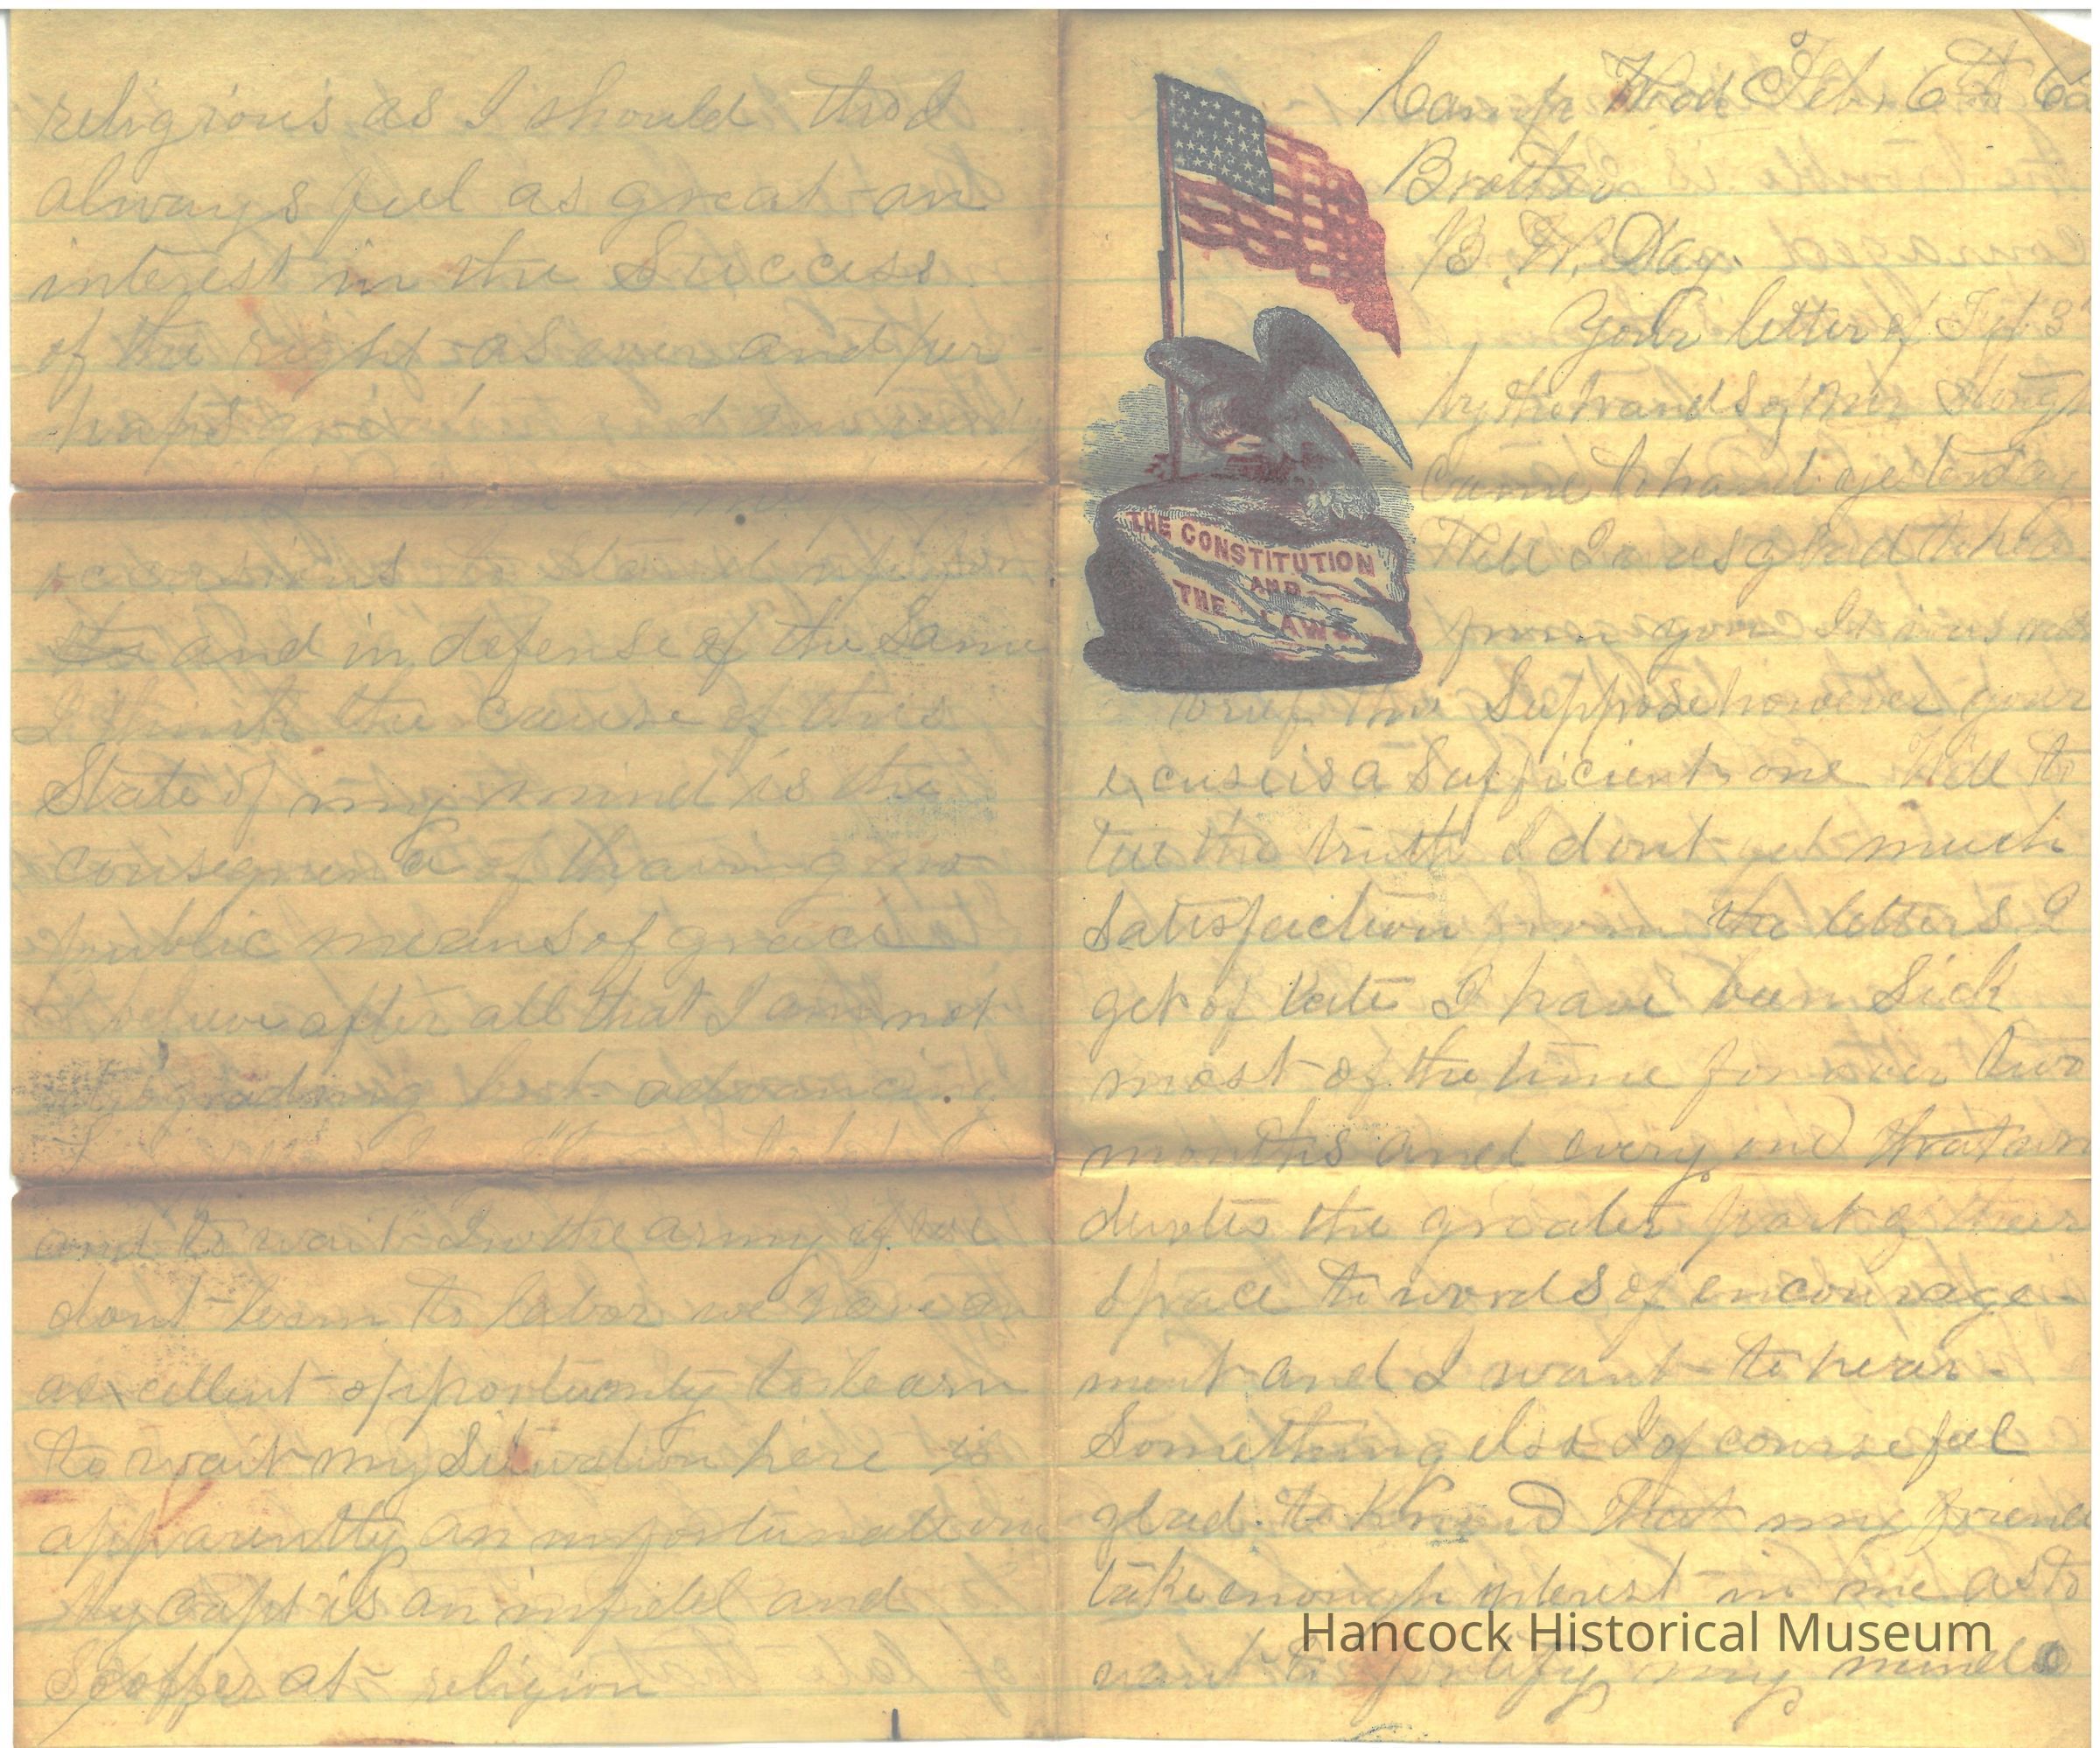 religious as I should tho I
always feel as great an
interest in the Success
of the right as ever and per
haps
occasions to stand up for
and in defense of the Same
I think the cause of this
State of my mind is the
consequence of having no
public means of grace
I believe after all that I am not
but advancing
and to wait In the army if we
dont learn to labor we have an
excellent opportunity to learn
to wait my Situation here is
apparently an unfortunate one
My capt is an infidel and
Scoffer at religion
Camp Wood Feb. 6th 62
Brother
B. W. Day.
Your letter of 3
by the hands of Mr
came to hand yesterday
Well I was glad to hear
from you It was
brief I Suppose however your
excuse is a Sufficient one Well to
tell the truth I dont get much
Satisfaction from the letters I
get of late I have been Sick
most of the time for over two
months and every one that
the greater part of their
Space to words of encourage-
ment and I want to hear
Something else I of course feel
glad to Know That my friends
take enough interest in me as to
want to fortify my mind
THE CONSTITUTION
AND
THE LAWS.
Hancock Historical Museum